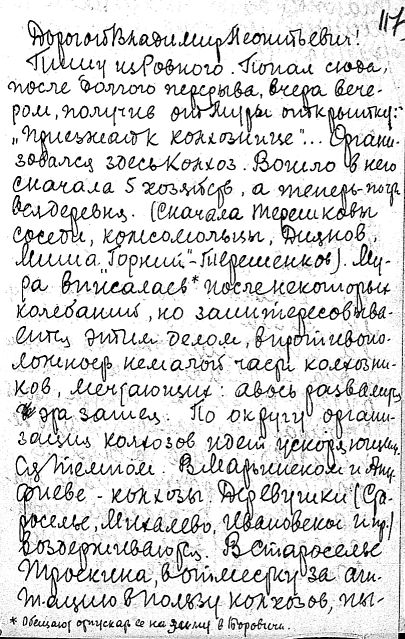 117
Дорогой Владимир Леонтьевич!
Пишу из Ровного. Попал сюда,
после долгого перерыва, вчера вече-
ром, получив от Муры открытку:
„Приезжай к колхознице"... Органи-
зовался здесь колхоз. Вошло в него
сначала 5 хозяйств, а теперь почти
вся деревня. (Сначала Терешковы
соседи, комсомольцы, Дианов,
Миша „Горний"-Терешенков). Му-
ра вписалась* после некоторых
колебаний, но заинтересовыва-
ется этим делом, в противопо-
ложность немалой части колхозни-
ков, мечтающих: авось развалится
эта затея. По округу органи-
зация колхозов идет ускоряющим-
ся темпом. В Марьинском и
- колхозы. Деревушки (Ста-
роселье, Михалево, Ивановское и пр.)
воздерживаются. В Староселье
Троскина, в отместку за аги-
тацию в пользу колхозов, пы-
* Обещают отпускать ее на зиму в Боровичи.